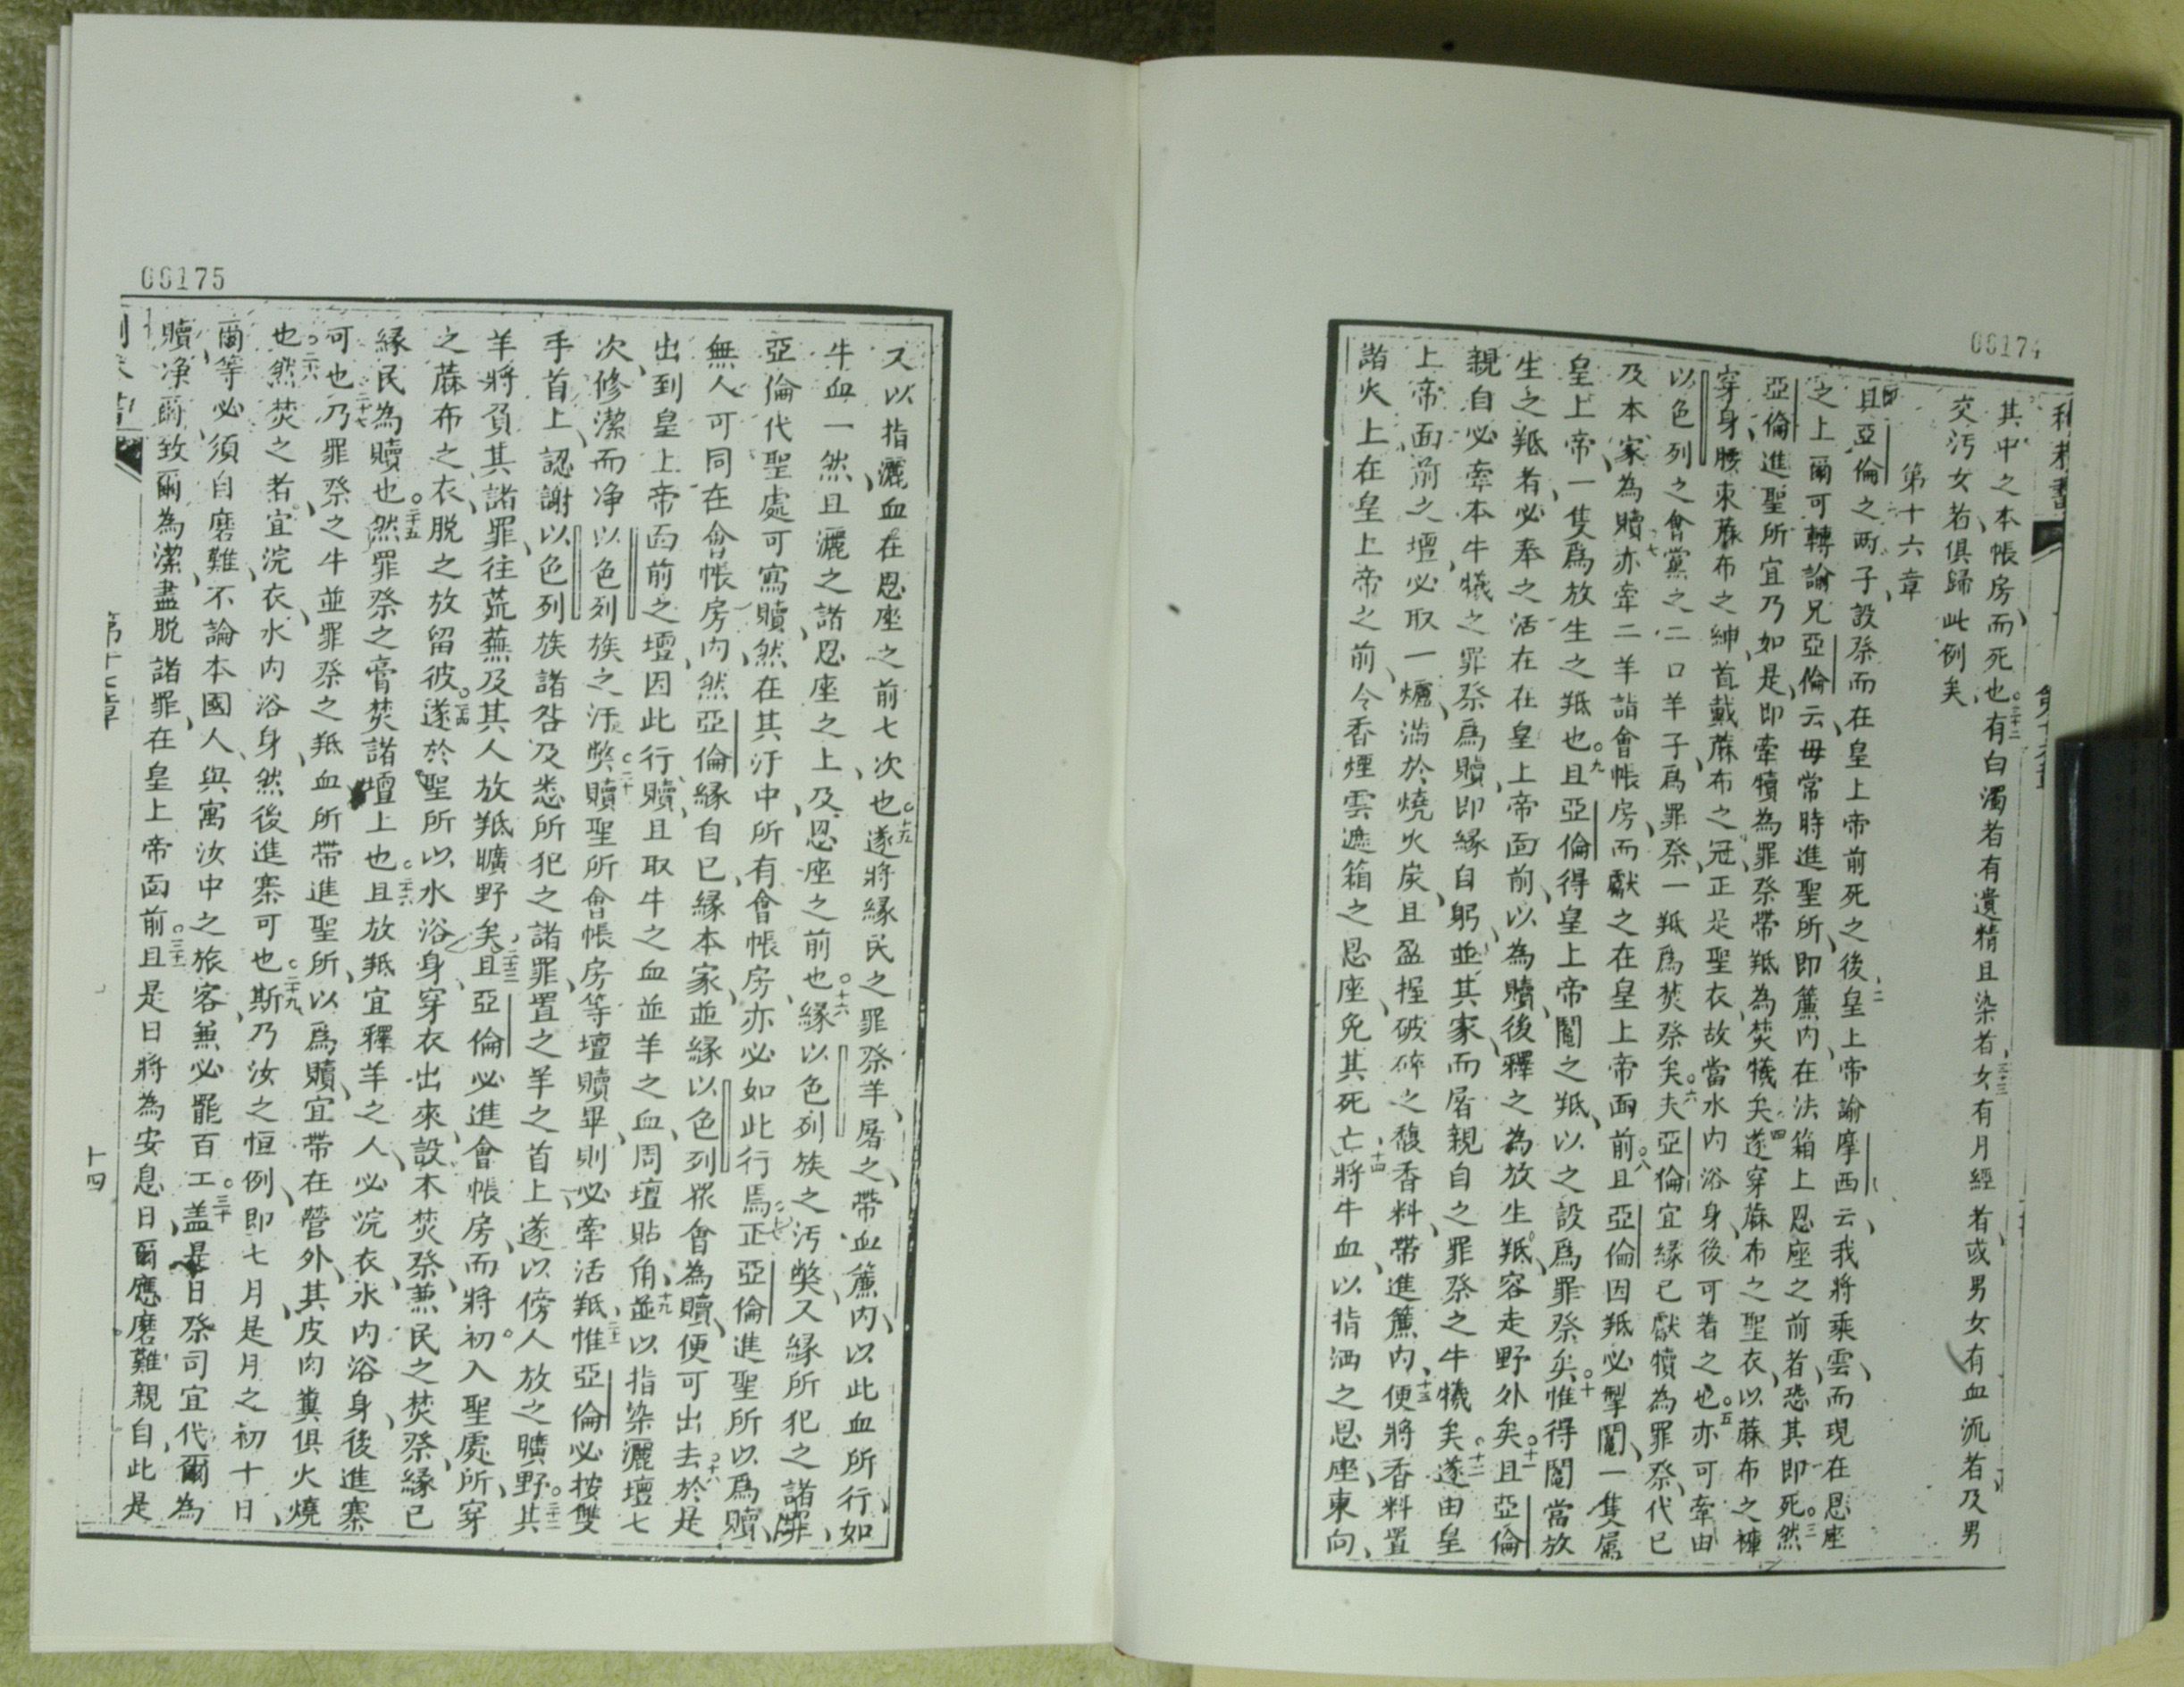 00174
其中之本帳房而死也○三十二有白濁者有遺精且染者三十三女有月經者或男女有血流者及男
交汚女者俱歸此例矣
第十六章
且亞倫之两子設祭而在皇上帝前死之後二皇上帝諭摩西云我將乘雲而現在恩座
之上爾可轉諭兄亞倫云毋常時進聖所即簾內在法箱上恩座之前者恐其即死○三然
亞倫進聖所宜乃如是即牽犢為罪祭帶羝為焚犧矣四遂穿蔴布之聖衣以蔴布之褲
穿身腰束蔴布之紳首戴蔴布之冠正是聖衣故當水内浴身後可着之也○五亦可牽由
以色列之會黨之二口羊子爲罪祭一羝爲焚祭矣○六夫亞倫宜縁已獻犢為罪祭代已
及本家為贖七亦牽二羊詣會帳房而獻之在皇上帝面前○八且亞倫因羝必掣鬮一隻屬
皇上帝一隻爲放生之羝也○九且亞倫得皇上帝鬮之羝以之設爲罪祭矣○十惟得鬮當放
生之羝者必奉之活在在皇上帝面前以為贖後釋之為放生羝容走野外矣○十一且亞倫
親自必牽本牛犧之罪祭爲贖即緣自躬並其家而屠親自之罪祭之牛犧矣○十二遂由皇
上帝面前之壇必取一爐滿於燒火炭且盈握破碎之馥香料帶進簾内十三便將香料置
諸火上在皇上帝之前令香煙雲遮箱之恩座免其死亡十四將牛血以指洒之恩座東向
00175
又以指灑血在恩座之前七次也○十五遂將緣民之罪祭羊屠之帶血簾内以此血所行如
牛血一然且灑之諸恩座之上及恩座之前也○十六緣以色列族之汚獘又緣所犯之諸罪
亞倫代聖處可寫贖然在其汙中所有會帳房亦必如此行焉○十七正亞倫進聖所以爲贖
無人可同在會帳房内然亞倫緣自已緣本家並緣以色列眾會為贖便可出去○十八於是
出到皇上帝面前之壇因此行贖且取牛之血並羊之血周壇貼角十九並以指染灑壇七
次修潔而净以色列族之汙獘○二十贖聖所會帳房等壇贖畢則必牽活羝二十一惟亞倫必按雙
手首上認謝以色列族諸咎及悉所犯之諸罪置之羊之首上遂以傍人放之曠野○二十二其
羊將負其諸罪往荒蕪及其人放羝曠野矣二十三且亞倫必進會帳房而將初入聖處所穿
之蔴布之衣脱之放留彼○二十四遂於聖所以水浴身穿衣出來設本焚祭兼民之焚祭緣已
緣民為贖也○二十五然罪祭之膏焚諸壇上也○二十六且放羝宜釋羊之人必浣衣水内浴身後進寨
可也二十七乃罪祭之牛並罪祭之羝血所帶進聖所以爲贖宜帶在營外其皮肉糞俱火燒
也○二十八然焚之者宜浣衣水内浴身然後進寨可也○二十九斯乃汝之恒例即七月是月之初十日
爾等必須自磨難不論本國人與寓汝中之旅客無必罷百工○三十盖是日祭司宜代爾為
贖净爾致爾為潔盡脱諸罪在皇上帝面前○三十一且是日將為安息日爾應磨難親自此是
十四